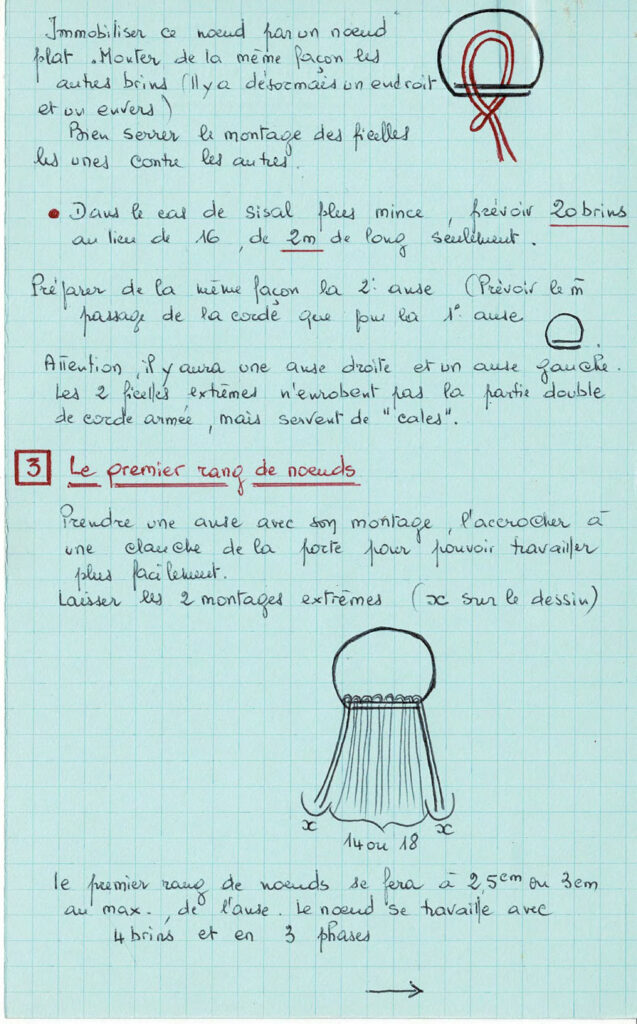 Immobiliser ce nœud par un nœud
plat. Monter de la même façon les
autres brins (Il y a désormais un endroit
et un envers)
Bien serrer le montage des ficelles
les unes contre les autres.
• Dans le cas de sisal plus mince, prévoir 20 brins
au lieu de 16, de 2m de long seulement.
Préparer de la même façon la 2e anse (Prévoir le m̄
passage de la corde que pour la 1e anse
Attention, il y aura une anse droite et un anse gauche.
Les 2 ficelles extrêmes n'enrobent pas la partie double
de corde armée, mais servent de "cales".
3 Le premier rang de nœuds
Prendre une anse avec son montage, l'accrocher à
une clanche de la porte pour pouvoir travailler
plus facilement.
Laisser les 2 montages extrêmes (x sur le dessin)
x x
14 ou 18
le premier rang de nœuds se fera à 2,5cm ou 3cm
au max. de l'anse. Le nœud se travaille avec
4 brins et en 3 phases
→